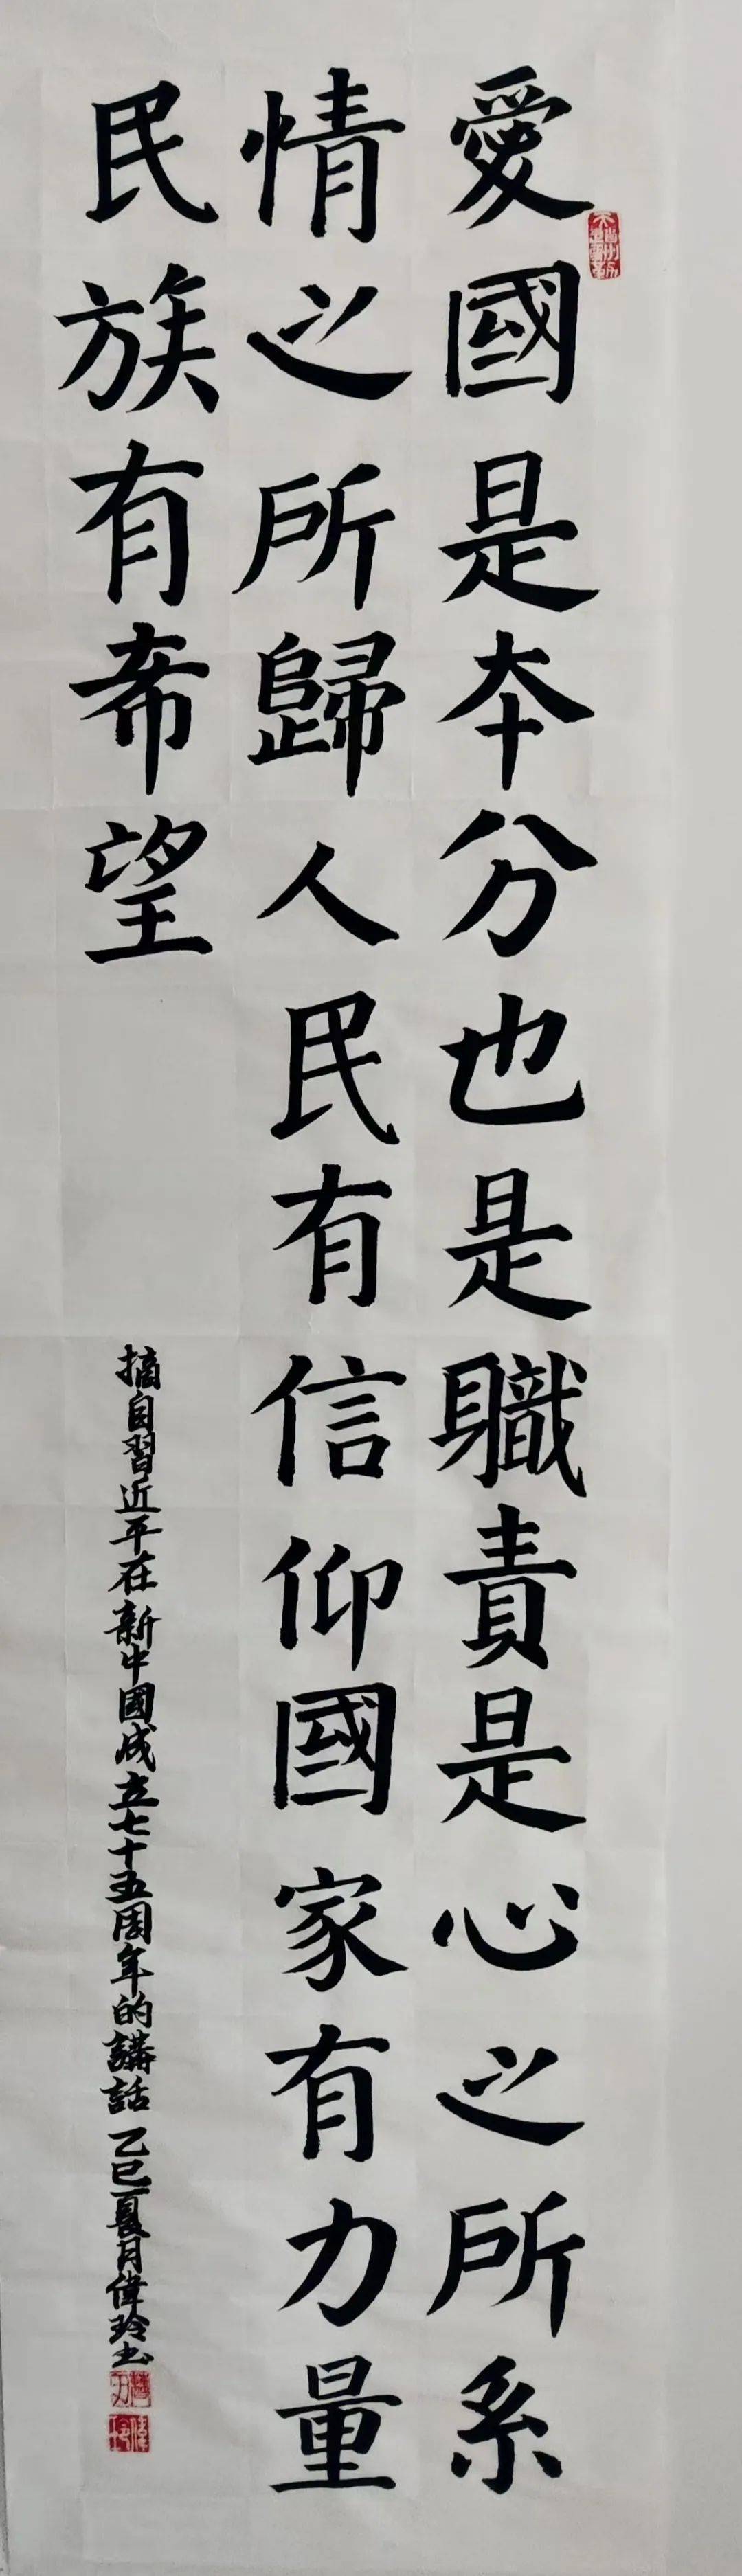 愛國是本分也是職責是心之所系
情之所歸人民有信仰國家有力量
民族有希望
摘自習近平在新中國成立七十五周年的講話 乙巳夏月偉玲书